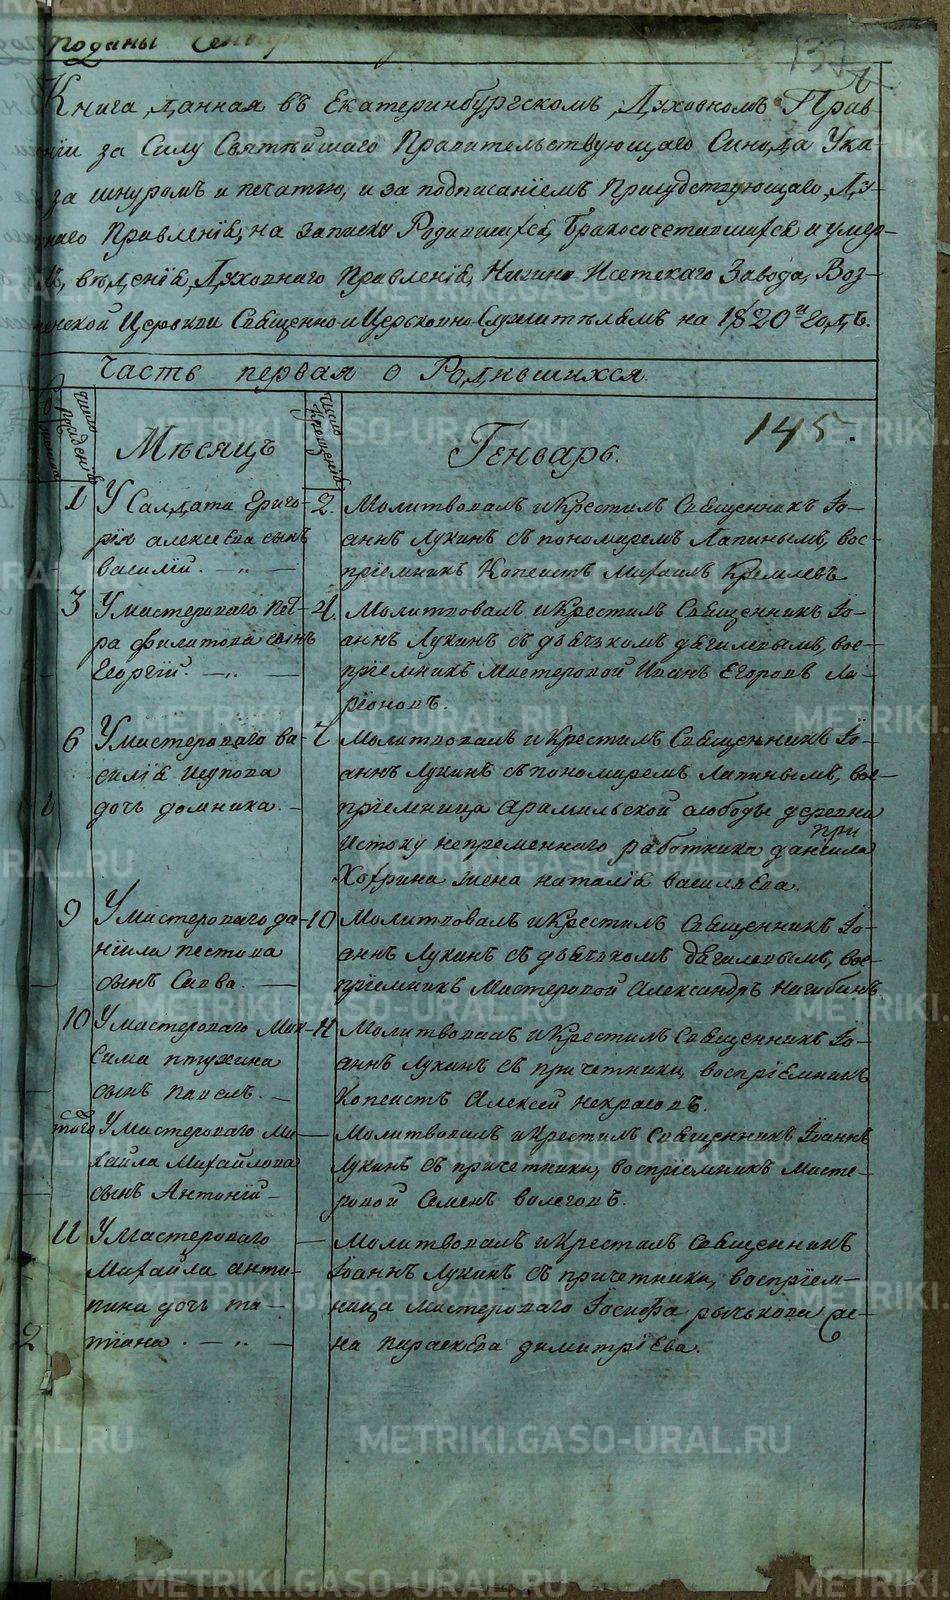 поданы
Книга данная въ Екатеринбургскомъ Духовномъ Прав
нïи за Силу Святѣйшаго Правительствующаго Синода Ука-
за шнуромъ и печатью, и за подписанïемъ Присудствующаго Ду-
наго Правленïя, на записку Родившихся, Бракосочетавшихся и умер-
вѣденïя Духовнаго Правленïя, Нижно Исетскаго Завода, Воз-
нской Церькви Священно и Церьковно Служителямъ на 1820й годъ.
Часть первая о Родившихся.
число рожденïя
число крещенïя
Мѣсяцъ
Генварь.
145.
1 У Салдата Григо-
рïя алексѣева сынъ
василïй.
2. Молитвовалъ и Крестилъ Священникъ Ïо-
аннъ Лукинъ съ пономаремъ Лапинымъ, вос-
прïемникъ Копеистъ Михаилъ Кремлевъ
3 У мастероваго Пет-
ра филатова сынъ
Георгïй.
4. Молитвовалъ и Крестилъ Священникъ Ïо-
аннъ Лукинъ съ дьячькомъ дягилевымъ, вос-
прïемникъ Мастеровой Иванъ Егоровъ Ла-
рïоновъ.
6 У мастероваго ва-
силïя шупова
дочь домника.
7 Молитвовалъ и Крестилъ Священникъ Ïо-
аннъ Лукинъ съ пономаремъ Лапинымъ, вос-
прïемница Арамильской слободы деревни
при
Истоку непременнаго работника данïила
Хохрина жена наталïя васильева.
9 У Мастероваго да-
нïила пестова
сынъ Савва.
10 Молитвовалъ и Крестилъ Священникъ Ïо-
аннъ Лукинъ съ дьячькомъ дягилевымъ, вос-
прïемникъ Мастеровой Александръ Нагибинъ
10 У мастероваго Мак-
сима птухина
сынъ павелъ.
11 Молитвовалъ и Крестилъ Священникъ Ïо-
аннъ Лукинъ съ причетники, воспрïемникъ
Копеистъ Алексей некрасовъ.
того У мастероваго Ми-
хайла Михайлова
сынъ Антонïй
Молитвовалъ и Крестилъ Священникъ Ïоаннъ
Лукинъ съ причетники, воспрïемникъ масте-
ровой Семенъ волеговъ.
11 У Мастероваго
Михайла анти-
пина дочь та-
тïана.
Молитвовалъ и Крестилъ Священникъ
Ïоаннъ Лукинъ съ причетники, воспрïем-
ница мастероваго Ïосифа рычькова же-
на параскева димитрïева.
2
METRIKI.GASO-URAL.RU